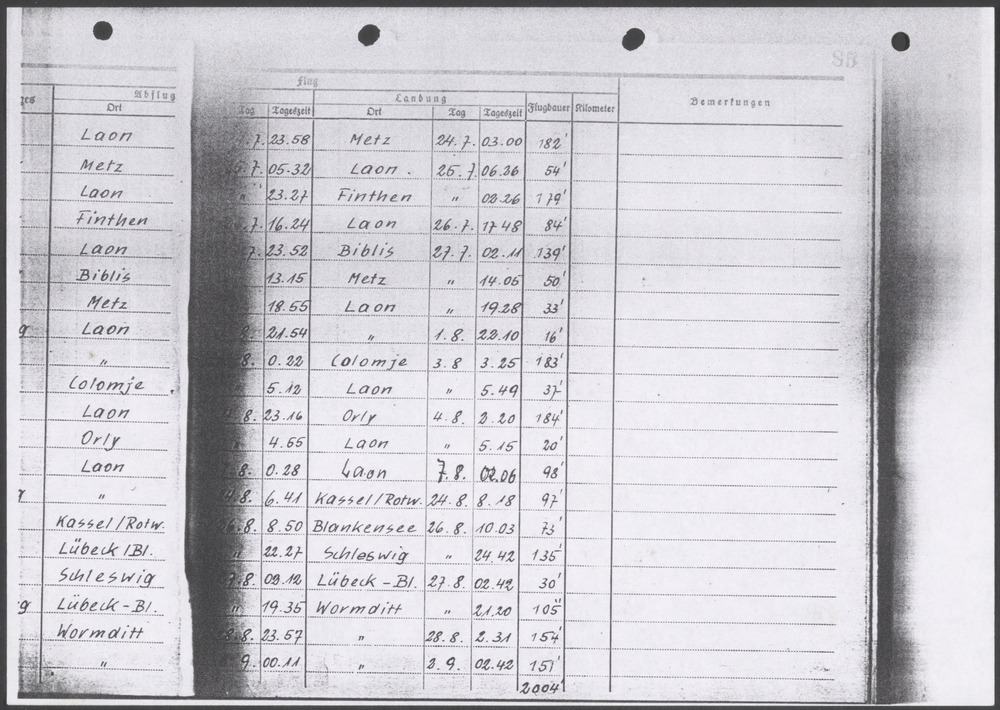 95
Flug
Abflug Landung Flugdauer Kilometer Bemerkungen
Ort Tag Tageszeit Ort Tag Tageszeit
Laon 7. 23.58 Metz 24.7. 03.00 182'
Metz 7. 05.32 Laon. 25.7. 06.26 54'
Laon " 23.27 Finthen " 02.26 179'
Finthen 7. 16.24 Laon 26.7. 17 48 84'
Laon 7. 23.52 Biblis 27.7. 02.11 139'
Biblis 13.15 Metz " 14.05 50'
Metz 18.55 Laon " 19.28 33'
Laon 8. 21.54 " 1.8. 22.10 16'
" 8. 0.22 Colomje 3.8 3.25 183'
Colomje 5.12 Laon " 5.49 37'
Laon 8. 23.16 Orly 4.8. 2.20 184'
Orly " 4.55 Laon " 5.15 20'
Laon 8. 0.28 Laon 7.8. 02.06 98'
" 8. 6.41 Kassel/Rotw. 24.8. 8.18 97'
Kassel/Rotw. 8. 8.50 Blankensee 26.8. 10.03 73'
Lübeck/Bl. " 22.27 Schleswig " 24.42 135'
Schleswig 8. 09.12 Lübeck-Bl. 27.8. 02.42 30'
Lübeck-Bl. " 19.35 Wormditt " 21.20 105'
Wormditt 8. 23.57 " 28.8. 2.31 154'
" 9. 00.11 " 2.9. 02.42 151'
2004'